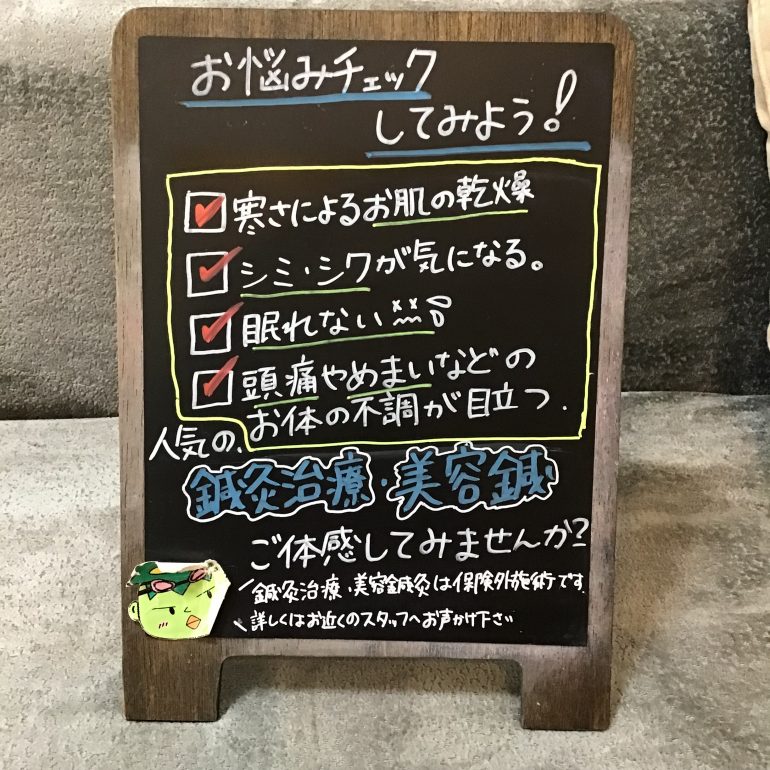 お悩みチェック
してみよう!
寒さによるお肌の乾燥
シミ・シワが気になる。
眠れない
頭痛やめまいなどの
お体の不調が目立つ.
人気の、
鍼灸治療・美容鍼
ご体感してみませんか?
鍼灸治療・美容鍼灸は保険外施術です。
詳しくはお近くのスタッフへお声かけ下さい